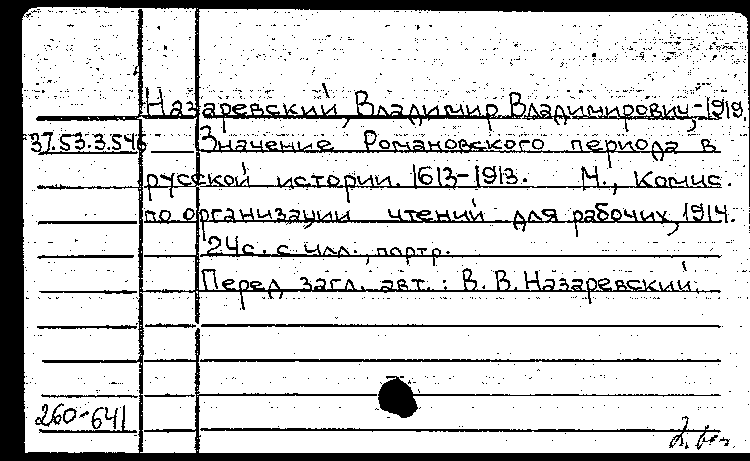 Назаревский, Владимир Владимирович, -1919.
37.53.3.546 Значение Романовского периода в
русской истории. 1613-1913. М., Комис.
по организации чтений для рабочих, 1914.
24с. с илл., портр.
Перед загл. авт.: В. В. Назаревский.
260-641